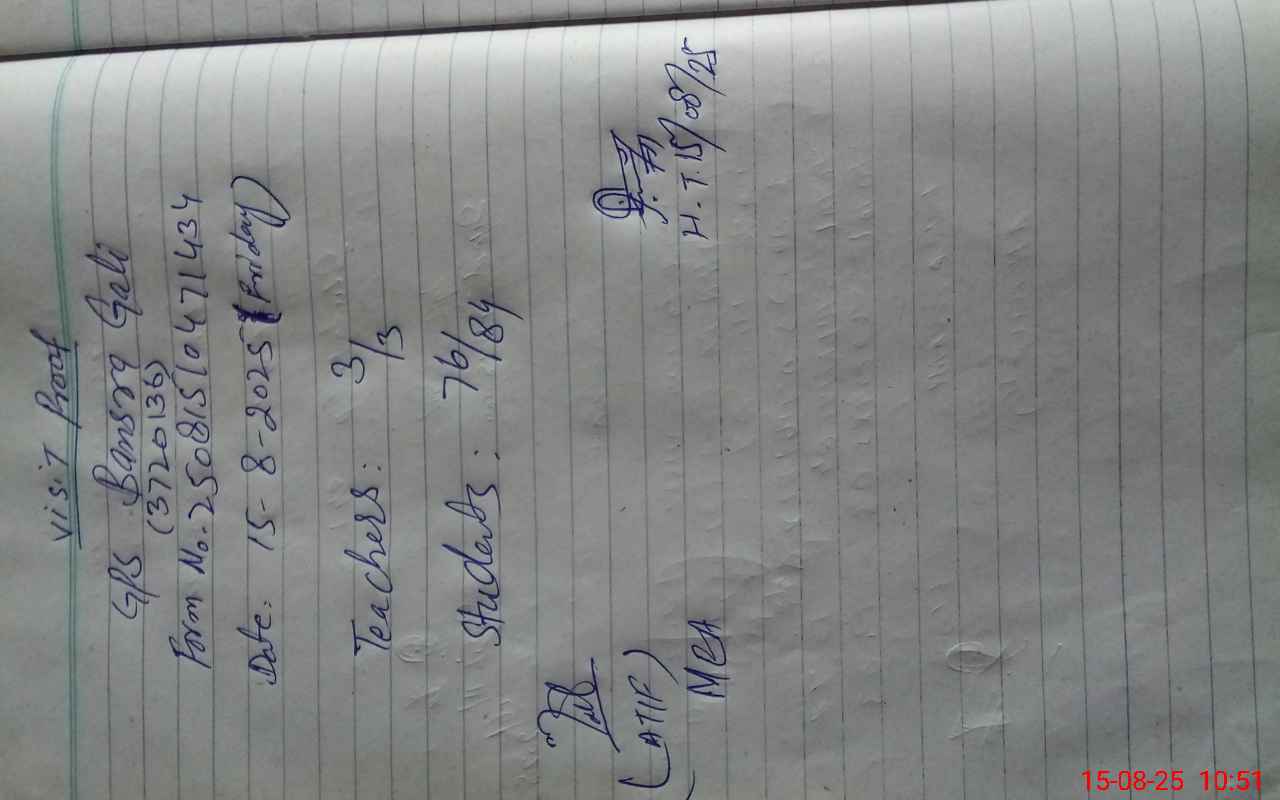 Visit Proof
GPS Bansra Gali
(37720136)
Form No. 250815104714 34
Date: 15-8-2025 (Friday)
Teachers: 3/3
Students: 76/84
(ATIF)
MEA
H.T. 15/08/25
15-08-25 10:51